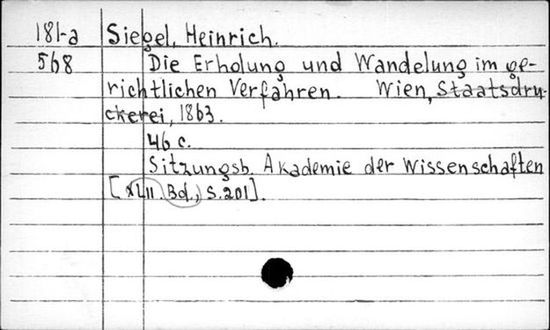 181-a Siegel, Heinrich.
568 Die Erholung und Wandelung im ge-
richtlichen Verfahren. Wien, Staatsdru-
ckerei, 1863.
46 c.
Sitzungsb. Akademie der Wissenschaften
[XLII. Bd., S.201].